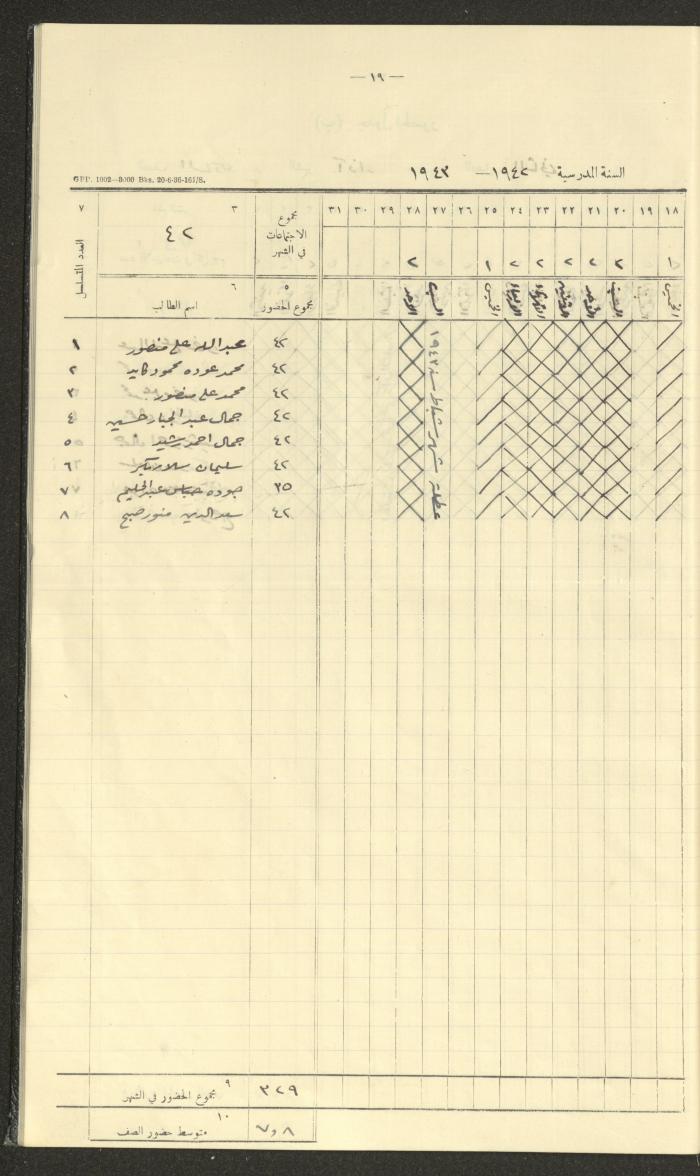 — ١٩ —
السنة المدرسية ١٩٤٢ — ١٩٤٣
GPP. 1002—3000 Bks. 20-6-36-161/S.
١٨ ١٩ ٢٠ ٢١ ٢٢ ٢٣ ٢٤ ٢٥ ٢٦ ٢٧ ٢٨ ٢٩ ٣٠ ٣١
مجموع الاجتماعات في الشهر
٣
٤٢
٧
العدد المتسلسل
١ ٢ ٢ ٢ ٢ ٢ ١ ٢
الخميس السبت الأحد الاثنين الثلاثاء الأربعاء الخميس السبت الأحد
٥
مجموع الحضور
٦
اسم الطالب
عطلة شهر شباط سنة ١٩٤٣
٤٢ عبدالله علي منصور ١
٤٢ محمد عوده محمود كايد ٢
٤٢ محمد علي منصور ٣
٤٢ جمال عبد الجبار حسين ٤
٤٢ جمال احمد رشيد ٥
٤٢ سليمان ٦
٣٥ جوده عباس عبد الحليم ٧
٤٢ سعد الدين منور صبح ٨
٩
مجموع الحضور في الشهر ٣٢٩
١٠
متوسط حضور الصف ٧٫٨